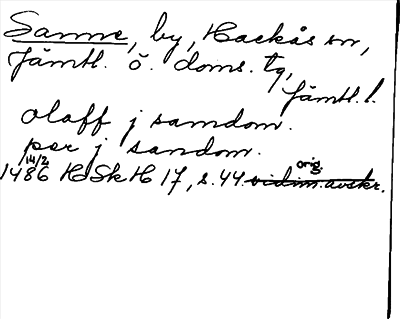 Sanne, by, Hackås sn,
Jämtl. ö. doms. tg,
Jämtl. l.
olaff j samdom.
per j sandom.
14/2 orig.
1486 HSkH 17, s. 44 vidim. avskr.